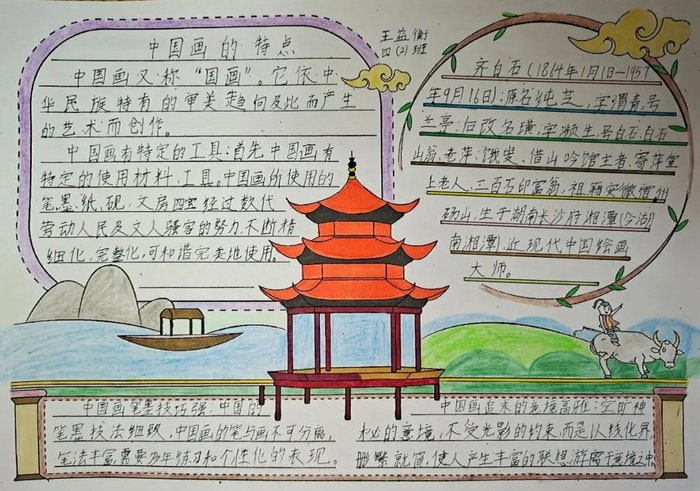 中国画的特点
中国画又称“国画”。它依中
华民族特有的审美趋向及此而产生
的艺术而创作。
中国画有特定的工具：首先中国画有
特定的使用材料、工具。中国画所使用的
笔、墨、纸、砚，文房四宝经过数代
劳动人民及文人骚客的努力，不断精
细化、完整化，可和谐完美地使用。
王益衡
四（2）班
齐白石（1864年1月1日—1957
年9月16日）：原名纯芝，字渭青，号
兰亭；后改名璜，字濒生，号白石、白石
山翁、老萍、饿叟、借山吟馆主者、寄萍堂
上老人、三百石印富翁，祖籍安徽宿州
砀山，生于湖南长沙府湘潭（今湖
南湘潭），近现代中国绘画
大师。
中国画笔墨技巧强：中国的
笔墨技法细致，中国画的笔与画不可分离，
笔法丰富，需要多年练习和个性化的表现。
中国画追求的意境高雅：空旷神
秘的意境，不受光影的约束，而是以线化界
删繁就简，使人产生丰富的联想，游离于意境之中